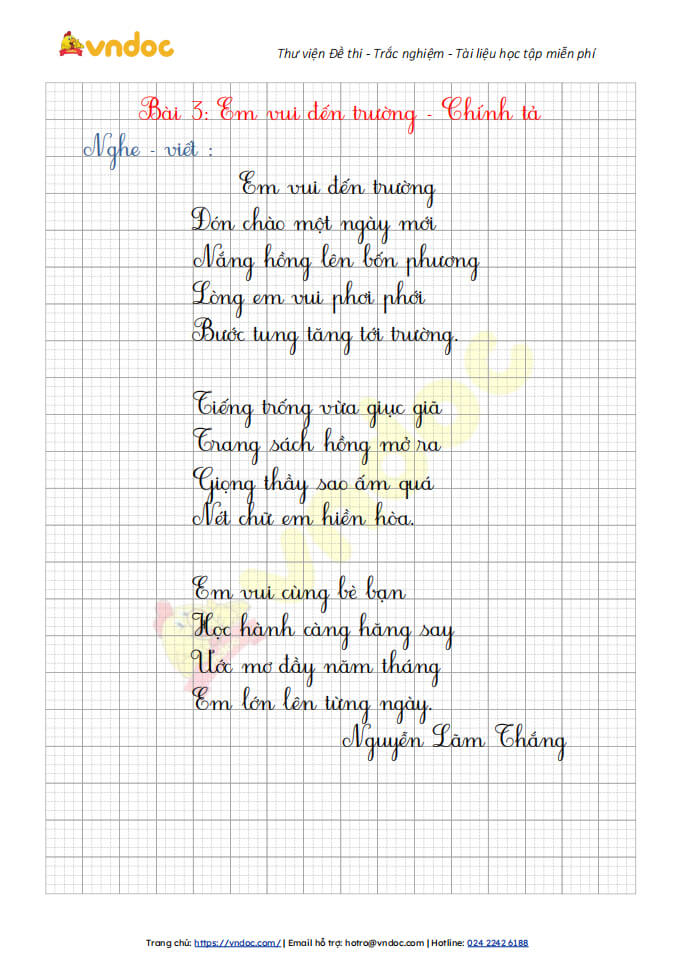 vndoc
Thư viện Đề thi - Trắc nghiệm - Tài liệu học tập miễn phí
Bài 3: Em vui đến trường - Chính tả
Nghe - viết :
Em vui đến trường
Đón chào một ngày mới
Nắng hồng lên bốn phương
Lòng em vui phơi phới
Bước tung tăng tới trường.
Tiếng trống vừa giục giã
Trang sách hồng mở ra
Giọng thầy sao ấm quá
Nét chữ em hiền hòa.
Em vui cùng bè bạn
Học hành càng hăng say
Ước mơ đầy năm tháng
Em lớn lên từng ngày.
Nguyễn Lãm Thắng
vndoc
Trang chủ: https://vndoc.com/ | Email hỗ trợ: hotro@vndoc.com | Hotline: 024 2242 6188